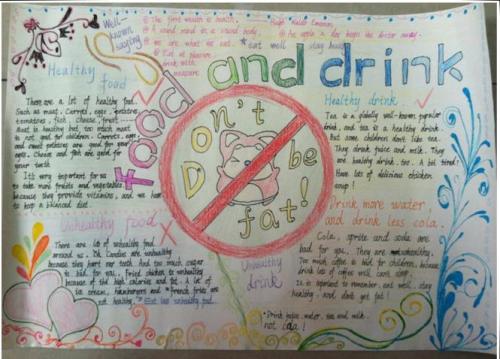 Well-
known
saying
The first wealth is health. Ralph Waldo Emerson
A sound mind in a sound body.
An apple a day keeps the doctor away.
we are what we eat.
eat well stay healthy
Eat at pleasure
drink with
measure
food and drink
Healthy
food
There are a lot of healthy food.
Such as meat, carrots, eggs, potatoes
tomatoes, fish, cheese, fruit
Meat is healthy but too much meat
is not good for children. Carrots, eggs
and sweet potatoes are good for your
eyes. Cheese and fish are good for
your teeth
It's very important for us
to take more fruits and vegetables
because they provide vitamins, and we have
to keep a balanced diet.
Don't
be
fat!
Healthy drink
Tea is a globally well-known popular
drink, and tea is a healthy drink.
But some children don't like tea.
They drink juice and milk. They
are healthy drink, too. A bit tired?
Have lots of delicious chicken
soup!
Drink more water,
and drink less cola.
Unhealthy food
There are lots of unhealthy food
around us. Candies are unhealthy
because they hurt our teeth. And too much sugar
is bad for you. Fried chicken is unhealthy
because of the high calories and fat. A lot of
ice cream, hamburgers and French fries are
not healthy. Eat less unhealthy food.
Unhealthy
drink
Cola, sprite and soda are
bad for you. They are unhealthy.
Too much coffee is bad for children, because
drink lots of coffee will can't sleep.
It is important to remember: eat well, stay
healthy, and don't get fat!
Drink juice, water, tea and milk.
not cola!